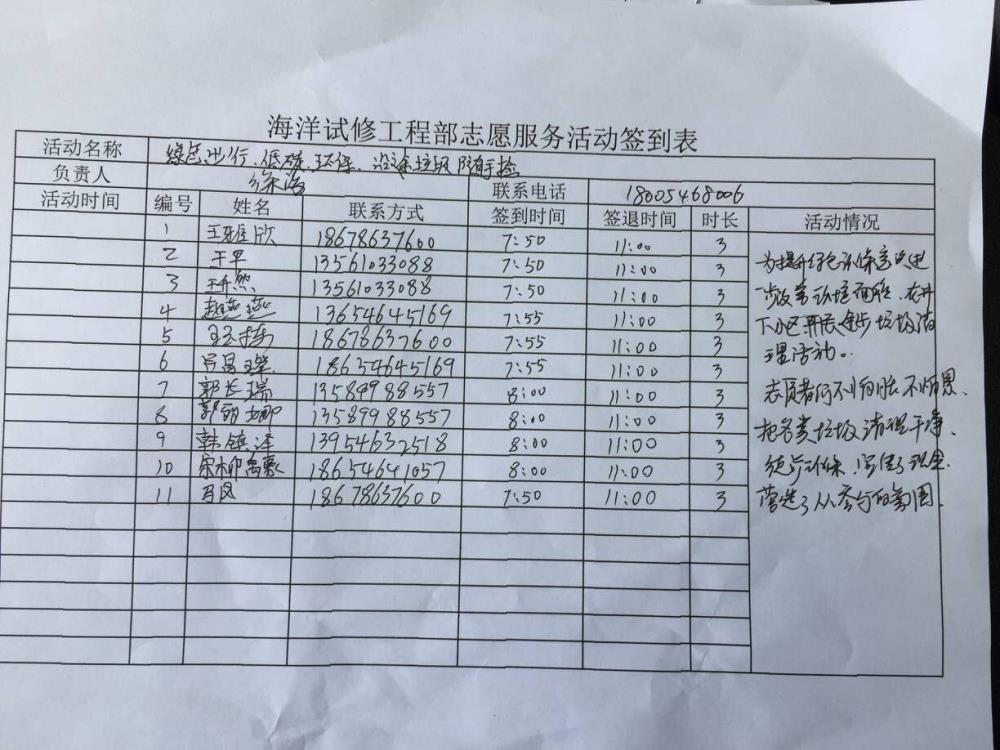 海洋试修工程部志愿服务活动签到表
活动名称 绿色出行、低碳环保、沿途垃圾随手捡
负责人 徐海 联系电话 18005468006
活动时间 编号 姓名 联系方式 签到时间 签退时间 时长 活动情况
1 王雅欣 18678637600 7:50 11:00 3
2 于早 13561033088 7:50 11:00 3
3 13561033088 7:50 11:00 3
4 赵燕燕 13654645169 7:55 11:00 3
5 18678637600 7:55 11:00 3
6 吕昌璨 18654645169 7:55 11:00 3
7 郭长瑞 13589988557 8:00 11:00 3
8 郭丽娜 13589988557 8:00 11:00 3
9 韩镇泽 13954632518 8:00 11:00 3
10 宋柳 18654641057 8:00 11:00 3
11 马风 18678637600 7:50 11:00 3
为提升绿色环保意识进
一步改善环境面貌、在井
下小区开展徒步垃圾清
理活动。
志愿者们不怕脏不怕累、
把各类垃圾清理干净、
徒步环保、
营造了从我的氛围.